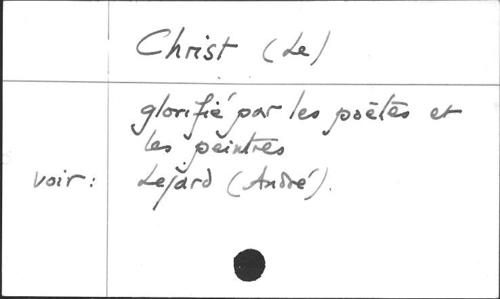 Christ (Le)
glorifié par les poètes et
les peintres
voir : Lejard (André).